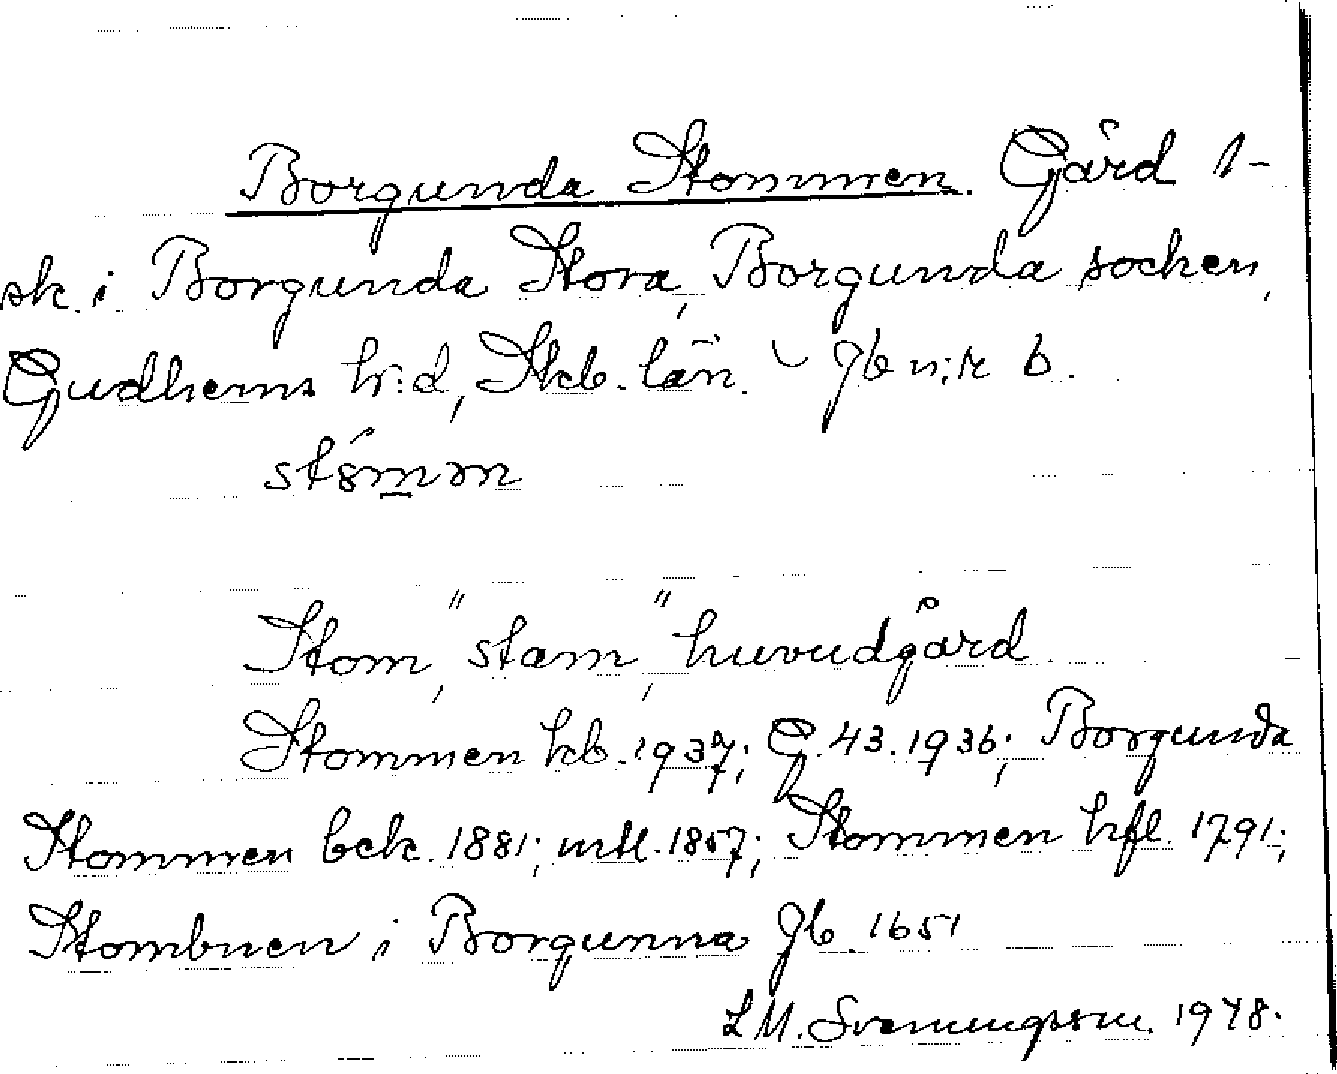 Borgunda Stommen. Gård 1-
sk. i Borgunda Stora, Borgunda socken,
Gudhems hr:d, Skb. län. – Jb n:r 6.
stómən
Stom, "stam", huvudgård
Stommen kb. 1937; G. 43. 1936; Borgunda
Stommen bek. 1881; mtl. 1857; Stommen hfl. 1791;
Stombnen i Borgunna Jb. 1651
L M. Svenungsson 1948.